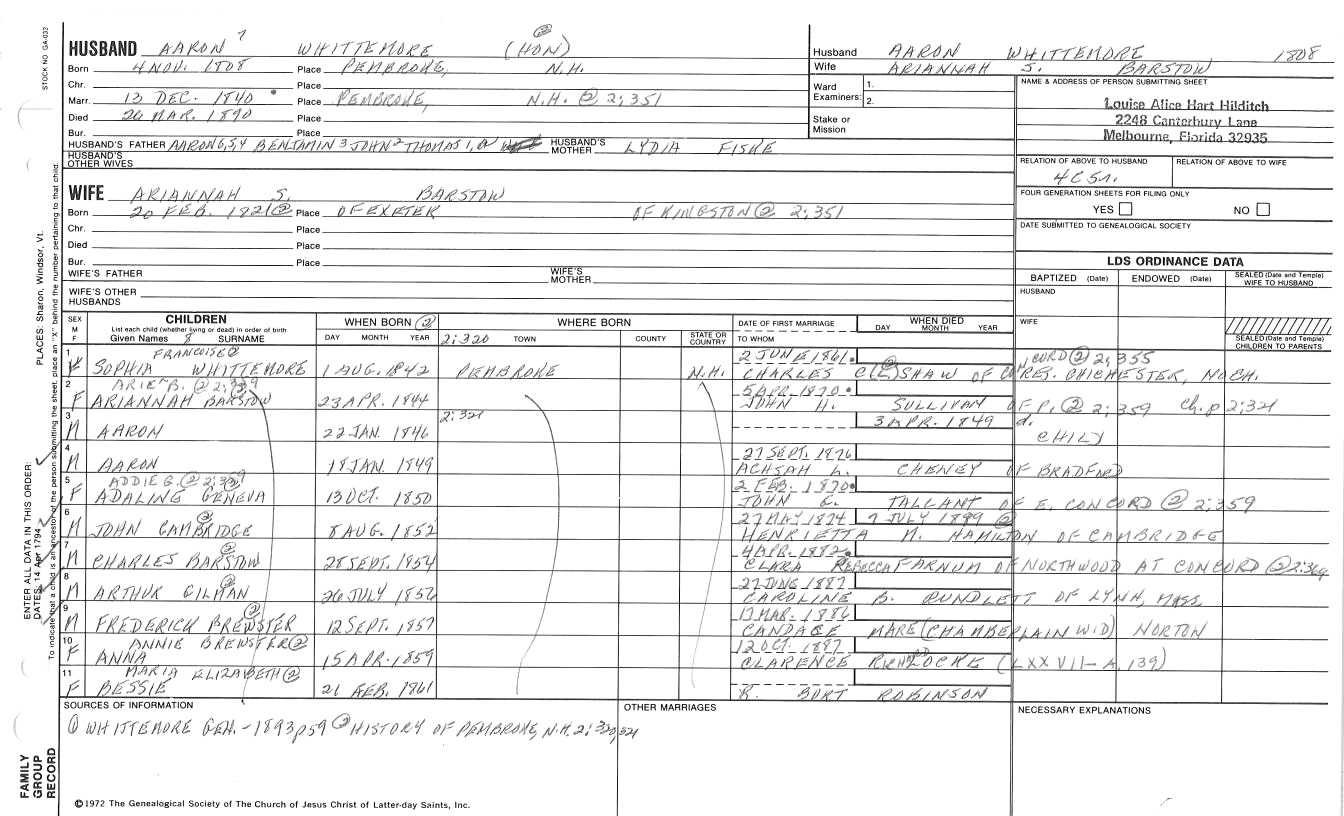 STOCK NO GA-032
HUSBAND AARON 7 WHITTEMORE (HON) ②
Born 4 NOV. 1808 Place PEMBROKE, N.H.
Chr. Place
Marr. 13 DEC. 1840 Place PEMBROKE, N.H. ② 2;351
Died 26 MAR. 1890 Place
Bur. Place
HUSBAND'S FATHER AARON 6,5,4 BENJAMIN 3 JOHN 2 THOMAS 1, HUSBAND'S MOTHER LYDIA FISKE
HUSBAND'S OTHER WIVES
WIFE ARIANNAH S. BARSTOW
Born 20 FEB. 1821 ② Place OF EXETER OF KINGSTON ② 2;351
Chr. Place
Died Place
Bur. Place
WIFE'S FATHER WIFE'S MOTHER
WIFE'S OTHER HUSBANDS
Husband AARON WHITTEMORE 1808
Wife ARIANNAH S. BARSTOW
Ward Examiners: 1. 2.
Stake or Mission
NAME & ADDRESS OF PERSON SUBMITTING SHEET
Louise Alice Hart Hilditch
2248 Canterbury Lane
Melbourne, Florida 32935
RELATION OF ABOVE TO HUSBAND RELATION OF ABOVE TO WIFE
4C5r.
FOUR GENERATION SHEETS FOR FILING ONLY
YES NO
DATE SUBMITTED TO GENEALOGICAL SOCIETY
LDS ORDINANCE DATA
BAPTIZED (Date) ENDOWED (Date) SEALED (Date and Temple) WIFE TO HUSBAND
HUSBAND
WIFE
SEALED (Date and Temple) CHILDREN TO PARENTS
SEX M F
CHILDREN
List each child (whether living or dead) in order of birth
Given Names 8 SURNAME
WHEN BORN ②
DAY MONTH YEAR
WHERE BORN
2;320 TOWN COUNTY STATE OR COUNTRY
DATE OF FIRST MARRIAGE
TO WHOM
WHEN DIED
DAY MONTH YEAR
1 FRANCOISE ② 2 JUNE 1861.
F SOPHIA WHITTEMORE 1 AUG. 1842 PEMBROKE N.H. CHARLES C(E ②) SHAW OF CONCORD ② 2;355 RES. CHICHESTER, NO CH.
2 ARIE B. ② 2;359 5 APR. 1870.
F ARIANNAH BARSTOW ② 23 APR. 1844 JOHN H. SULLIVAN OF P. ② 2;359 Ch. p 2;321
3 2;321 3 APR. 1849 d.
M AARON 22 JAN. 1846 CHILY
4 27 SEPT. 1876
M AARON 18 JAN. 1849 ACHSAH L. CHENEY OF BRADFORD
5 ADDIE G. ② 2;359 2 FEB. 1870.
F ADALINE GENEVA 13 OCT. 1850 JOHN E. TALLANT OF E. CONCORD ② 2;359
6 27 MAY 1874 7 JULY 1899 ②
M JOHN CAMBRIDGE ② 8 AUG. 1852 HENRIETTA M. HAMILTON OF CAMBRIDGE
7 4 APR. 1882.
M CHARLES BARSTOW ② 28 SEPT. 1854 CLARA REBECCA FARNUM OF NORTHWOOD AT CONCORD ② 2:369
8 27 JUNE 1887
M ARTHUR GILMAN ② 26 JULY 1856 CAROLINE B. RUNDLETT OF LYNN, MASS.
9 17 MAR. 1886
M FREDERICK BREWSTER ② 12 SEPT. 1857 CANDACE MARE (CHAMBERLAIN WID) NORTON
10 ANNIE BREWSTER ② 12 OCT. 1887
F ANNA 15 APR. 1859 CLARENCE RICHD LOCKE (LXXVII-A, 139)
11 MARIA ELIZABETH ②
F BESSIE 21 FEB. 1861 R. BURT ROBINSON
SOURCES OF INFORMATION
① WHITTEMORE GEN. - 1893 p59 ② HISTORY OF PEMBROKE, N.H. 2;320,321
OTHER MARRIAGES
NECESSARY EXPLANATIONS
ENTER ALL DATA IN THIS ORDER:
DATES: 14 Apr 1794
PLACES: Sharon, Windsor, Vt.
To indicate that a child is an ancestor of the person submitting the sheet, place an "X" behind the number pertaining to that child.
FAMILY GROUP RECORD
©1972 The Genealogical Society of The Church of Jesus Christ of Latter-day Saints, Inc.